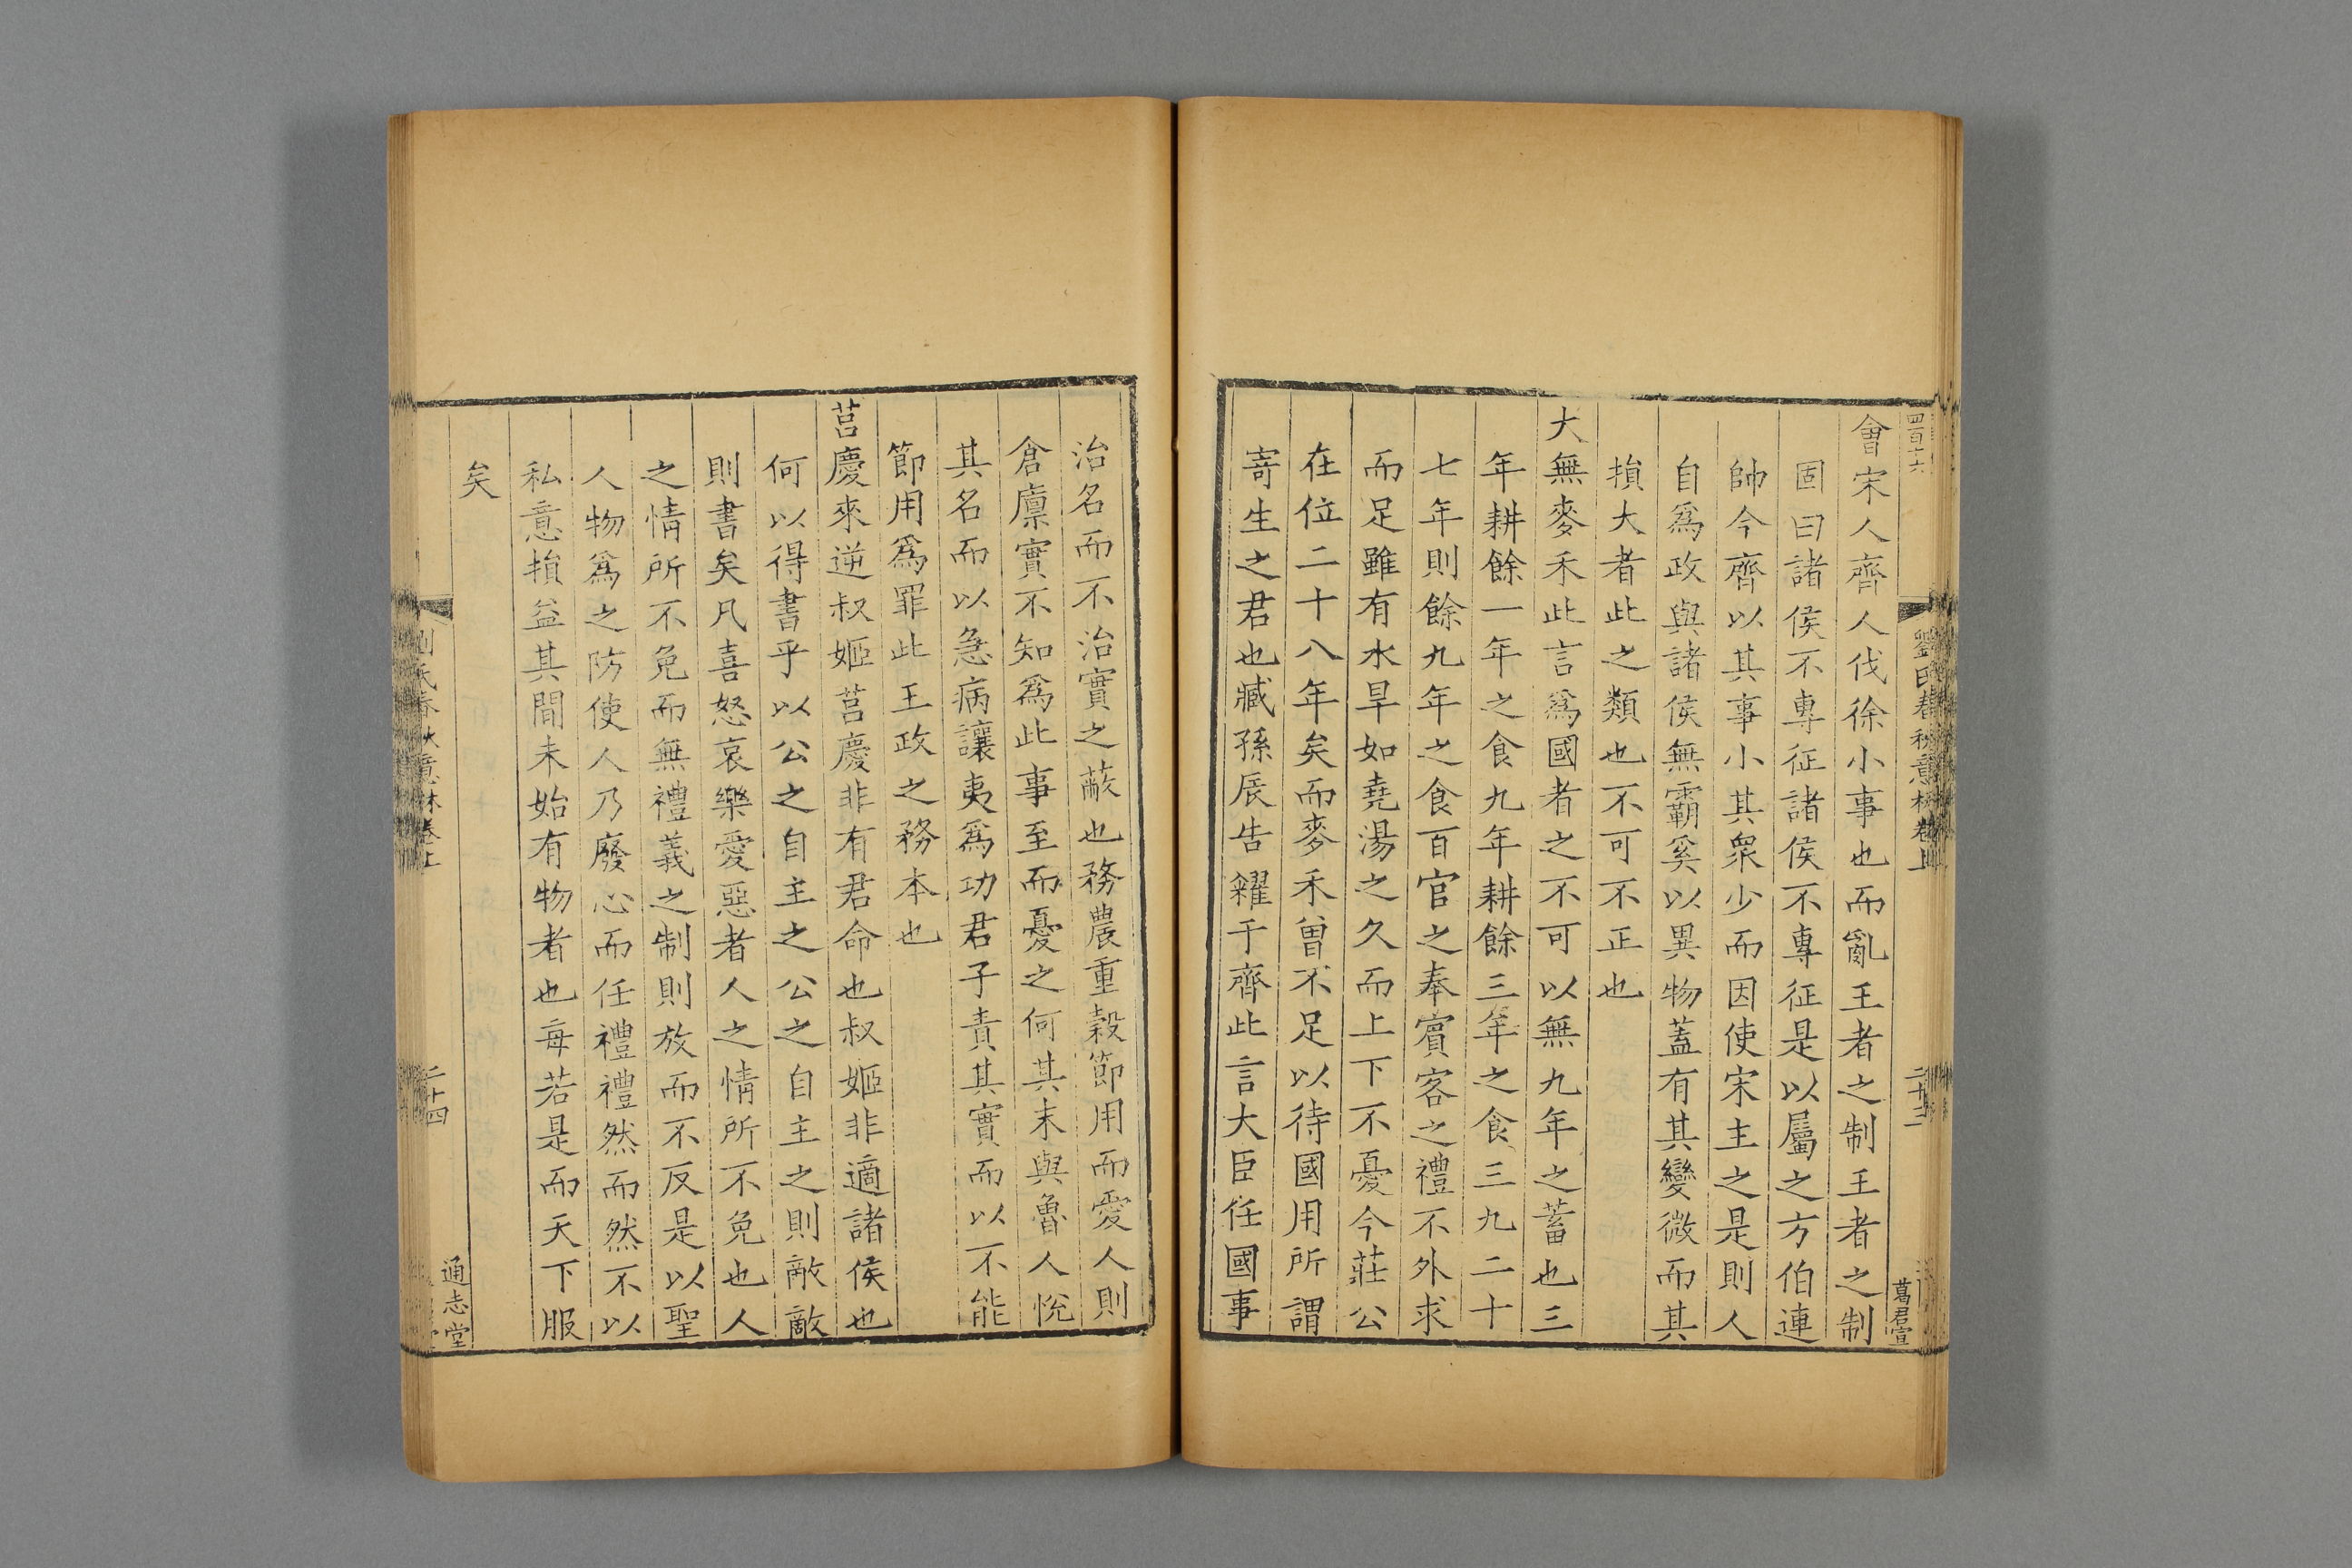 四百十六
劉氏春秋意林卷上
二十三
葛君宣
會宋人齊人伐徐小事也而亂王者之制王者之制
固曰諸侯不專征諸侯不專征是以屬之方伯連
帥今齊以其事小其衆少而因使宋主之是則人
自爲政與諸侯無霸奚以異物蓋有其變微而其
損大者此之類也不可不正也
大無麥禾此言爲國者之不可以無九年之蓄也三
年耕餘一年之食九年耕餘三年之食三九二十
七年則餘九年之食百官之奉賓客之禮不外求
而足雖有水旱如堯湯之久而上下不憂今莊公
在位二十八年矣而麥禾曾不足以待國用所謂
寄生之君也臧孫辰告糴于齊此言大臣任國事
治名而不治實之蔽也務農重穀節用而愛人則
倉廩實不知爲此事至而憂之何其末與魯人悅
其名而以急病讓夷爲功君子責其實而以不能
節用爲罪此王政之務本也
莒慶來逆叔姬莒慶非有君命也叔姬非適諸侯也
何以得書乎以公之自主之公之自主之則敵敵
則書矣凡喜怒哀樂愛惡者人之情所不免也人
之情所不免而無禮義之制則放而不反是以聖
人物爲之防使人乃廢心而任禮禮然而然不以
私意損益其間未始有物者也每若是而天下服
矣
劉氏春秋意林卷上
二十四
通志堂